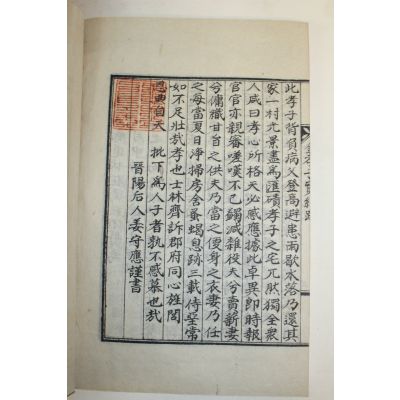 此孝子背負病父登高避患雨歇水落乃還其
家一村尤景盡爲匯磧孝子之宅兀然獨全衆
人咸曰孝心所格天必感應據此卓異即時報
官官亦親審嗟嘆不已蠲減雜役夫兮賣薪妻
兮傭織甘旨之供夫乃當之便身之衣妻乃任
之每當夏日淨掃房舍蚤蝎息跡三載侍
如不足壯哉孝也士林齊訴郡府同心旌閭
恩典自天 批下爲人子者孰不感慕也哉
晋陽后人姜守應謹書